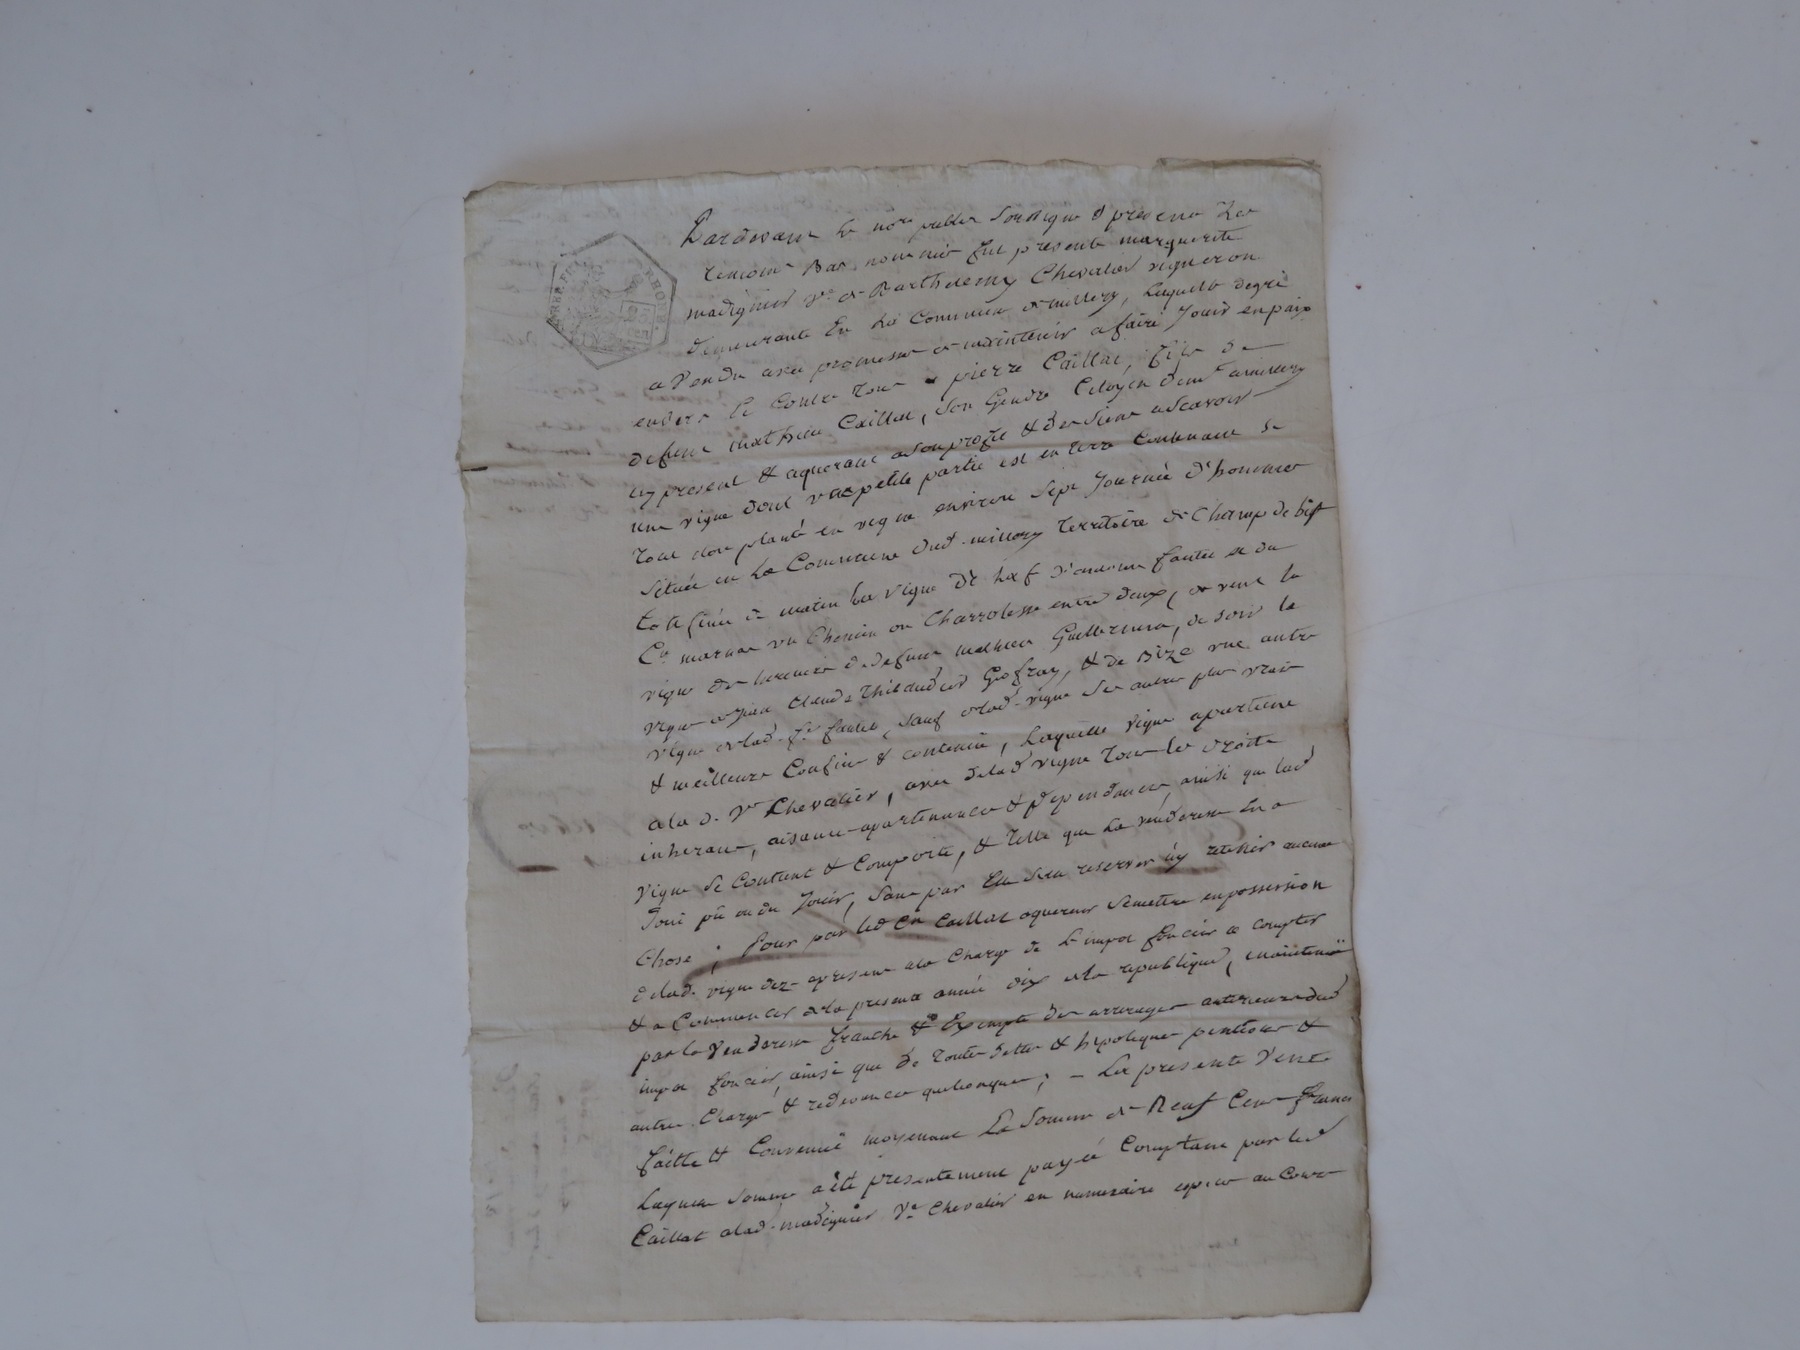 Pardevant le nore public soussigné & presence des
temoins bas nommés fut presente marguerite
madignier ve de Barthelemy Chevalier vigneron
demeurante En la Commune de millery, laquelle degré
a vendu avec promesse de maintenir a faire Jouir en paix
envers & contre tous a pierre Caillat, fils de
defunt mathieu Caillat, son Gendre Citoyen demt amillery
cy present & aquerant a son profit & des siens ascavoir
une vigne dont une petite partie est en terre contenant le
tout non planté en vigne environ sept Journée d'hommes
située en la Commune dud. millery territoire de Champ de bist
Confinée de matin la vigne de
Cn marnas un Chemin ou Charrolesse entre deux, de vent la
vigne des heritiers de defunt mathieu Guillermin, de soir la
vigne de Jean Claude Thibaudier Geofray, & de Bize une autre
vigne de lad. sauf de lad. vigne ses autres plus vrais
& meilleurs Confins & contenüe, laquelle vigne apartient
a lad. ve Chevalier, avec de lad vigne tous les droits
inherants, aisances apartenances & dependances, ainsi que lad
vigne se Contient & Comporte, & telle que la venderesse En a
Joui pû ou du Jouir, sans par Elle s'en reserver ny retenir aucune
Chose; Pour par led Cn Caillat aquereur se mettre en possession
de lad. vigne dez apresent a la Charge de l'impot foncier a compter
& a Commencer de la presente année dix de la republique, maintenüe
par la venderesse franche & Exempte des arrerages anterieurs dud
impot foncier, ainsi que de toutes dettes & hipoteques pentions &
autres Charges & redevances quelconques; - La presente vente
faitte & Convenüe moyenant La Somme de Neuf Cent francs
Laquelle Somme a été presentement payée Comptant par led
Caillat a lad. madignier ve Chevalier en numeraire especes au Cours